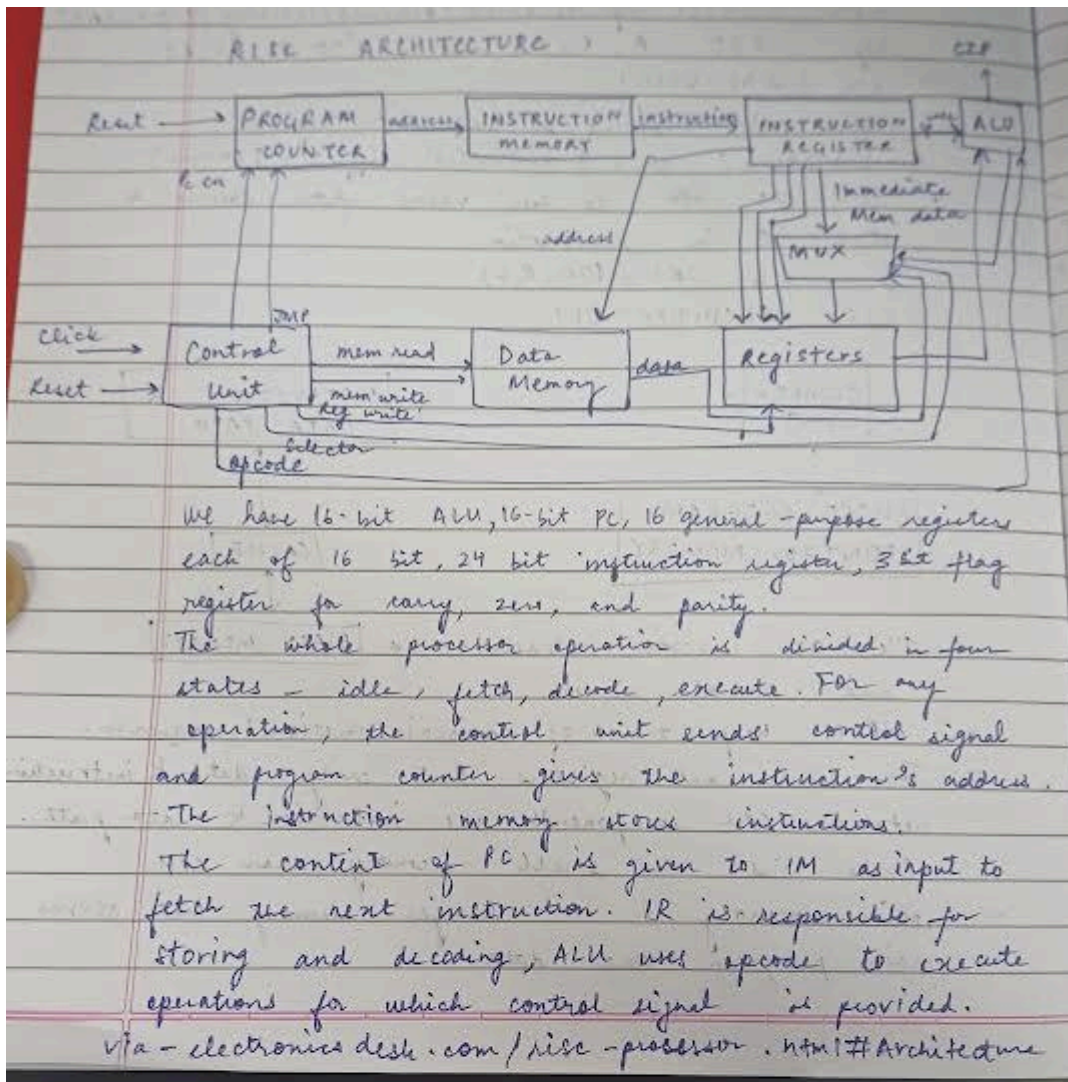 RISC ARCHITECTURE
CZP
Reset
PROGRAM COUNTER
address
INSTRUCTION MEMORY
instruction
INSTRUCTION REGISTER
ALU
PC en
Immediate
Mem data
address
MUX
JMP
Click
Reset
Control Unit
mem read
mem write
Reg write
Data Memory
data
Registers
selector
opcode
We have 16-bit ALU, 16-bit PC, 16 general-purpose registers
each of 16 bit, 24 bit instruction register, 3 bit flag
register for carry, zero, and parity.
The whole processor operation is divided in four
states - idle, fetch, decode, execute. For any
operation, the control unit sends control signal
and program counter gives the instruction's address.
The instruction memory stores instuctions.
The content of PC is given to IM as input to
fetch the next instruction. IR is responsible for
storing and decoding, ALU uses opcode to execute
operations for which control signal is provided.
via - electronicsdesk.com/risc-processor.html#Architecture